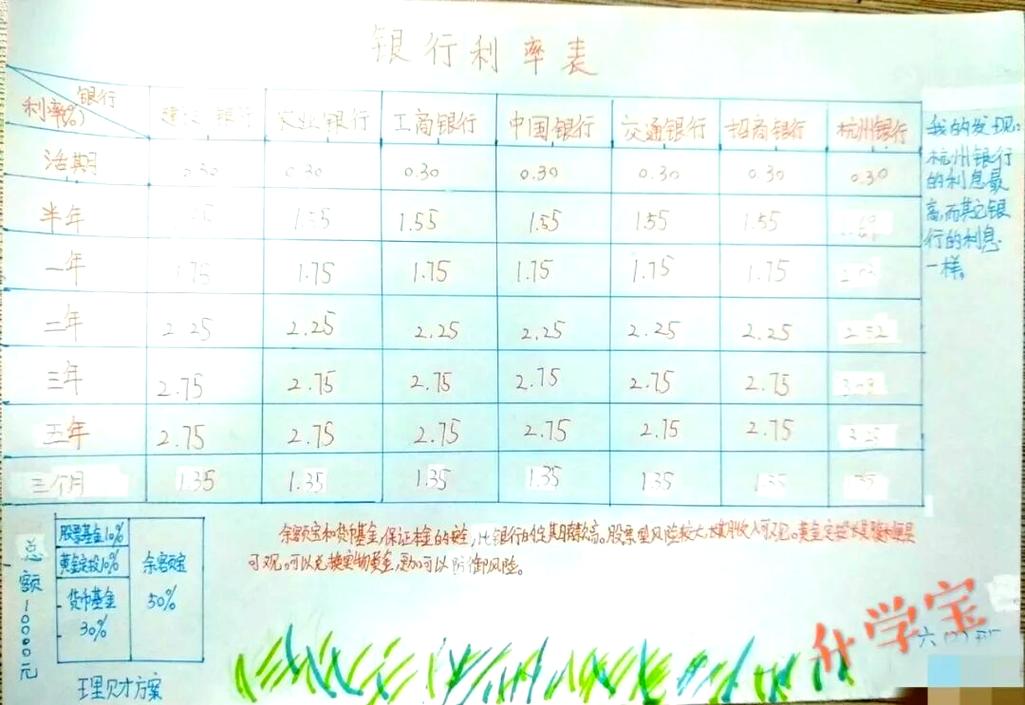 银行利率表
银行
利率(%)
建设银行 农业银行 工商银行 中国银行 交通银行 招商银行 杭州银行
活期 0.30 0.30 0.30 0.30 0.30 0.30 0.30
半年 1.55 1.55 1.55 1.55 1.55
一年 1.75 1.75 1.75 1.75 1.75 1.75
二年 2.25 2.25 2.25 2.25 2.25 2.25
三年 2.75 2.75 2.75 2.75 2.75 2.75
五年 2.75 2.75 2.75 2.75 2.75 2.75
三个月 1.35 1.35 1.35 1.35 1.35 1.35
我的发现:
杭州银行
的利息最
高,而其它银
行的利息
一样。
总额10000元
股票基金10%
黄金定投10%
货币基金
30%
余额宝
50%
理财方案
余额宝和货币基金,保证本金的安全,比银行的定期存款高。股票型风险较大,长期收入可观。黄金定投
可观。可以兑换实物黄金,更加可以防御风险。
什学宝
六(2)班